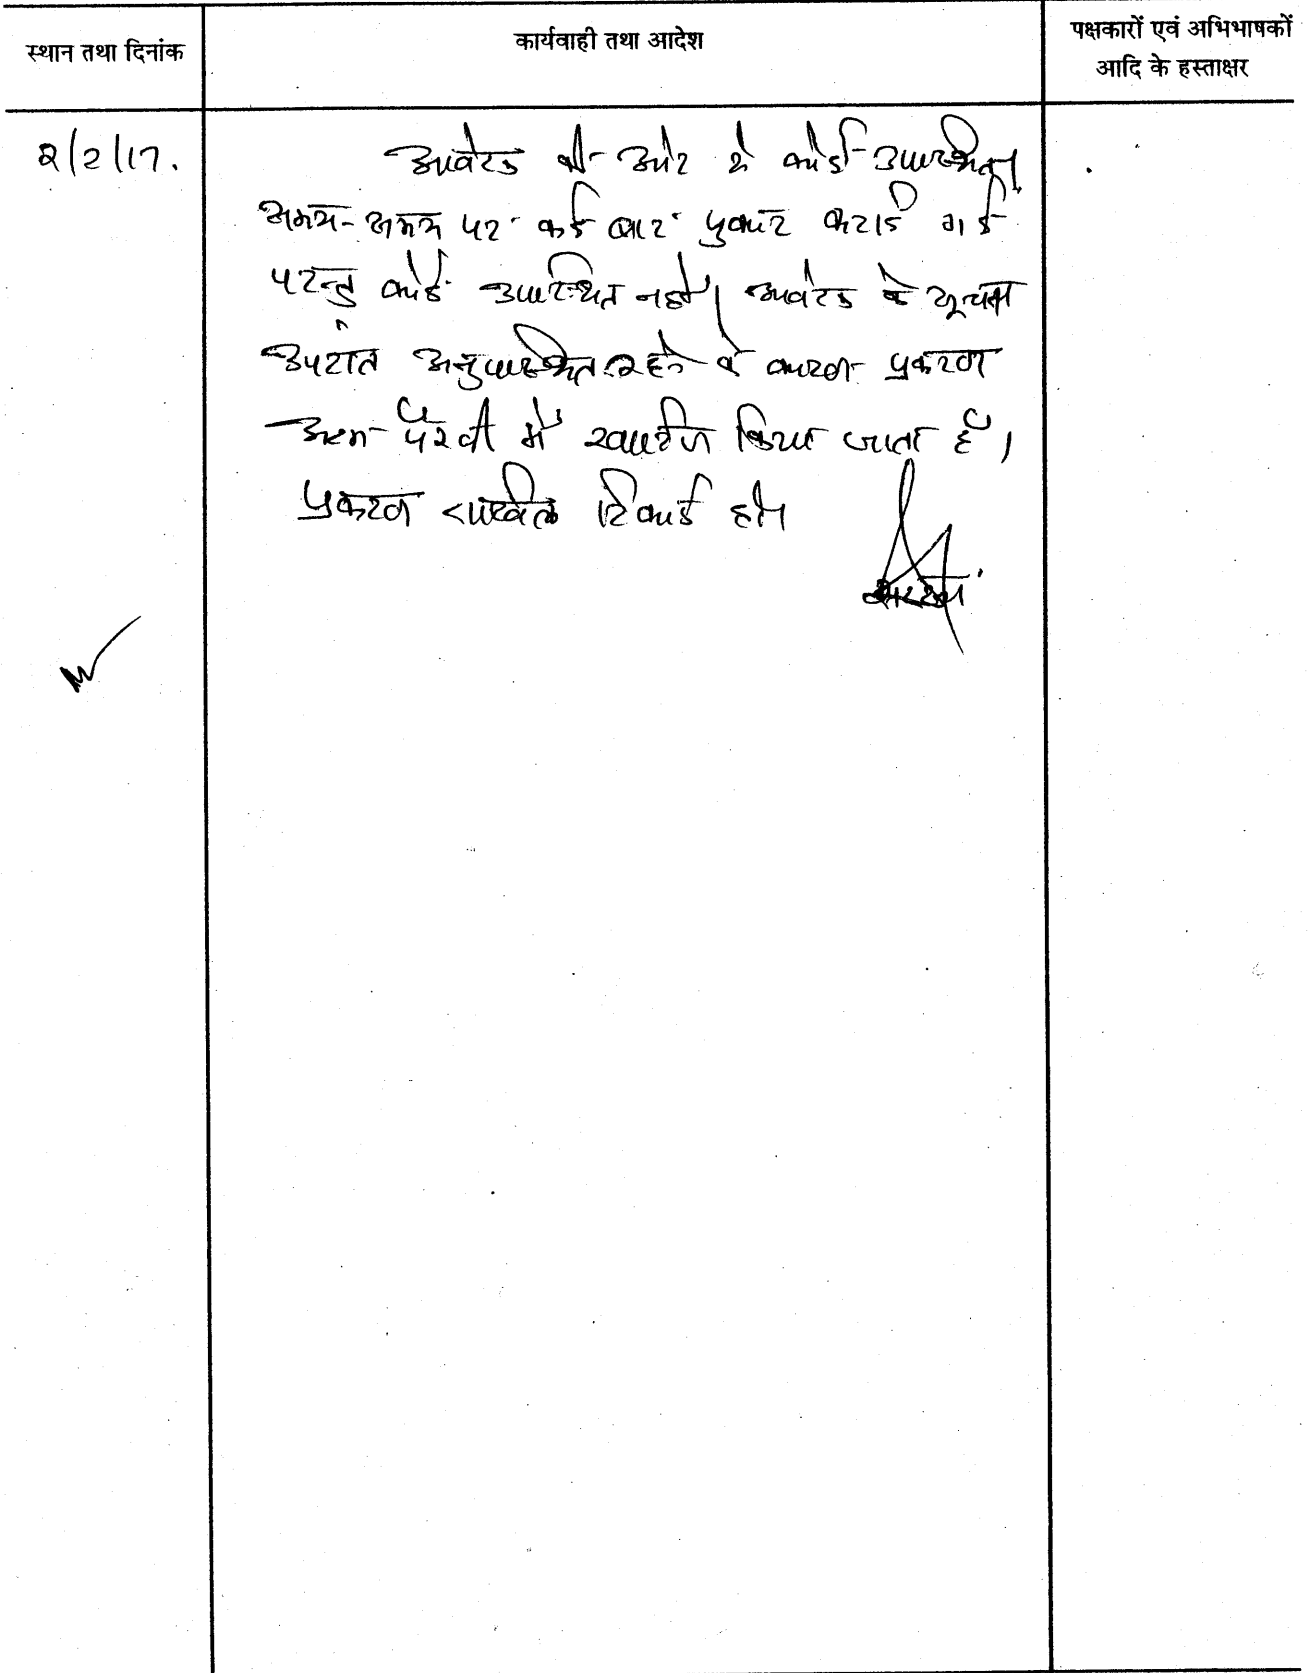 स्थान तथा दिनांक
कार्यवाही तथा आदेश
पक्षकारों एवं अभिभाषकों
आदि के हस्ताक्षर
2/2/17.
आवेदक की ओर से कोई उपस्थित।
समय-समय पर कई बार पुकार कराई गई
परन्तु कोई उपस्थित नहीं। आवेदक के सूचना
उपरांत अनुपस्थित रहने के कारण प्रकरण
अदम पैरवी में खारिज किया जाता है।
प्रकरण दाखिल रिकार्ड हो।
सदस्य